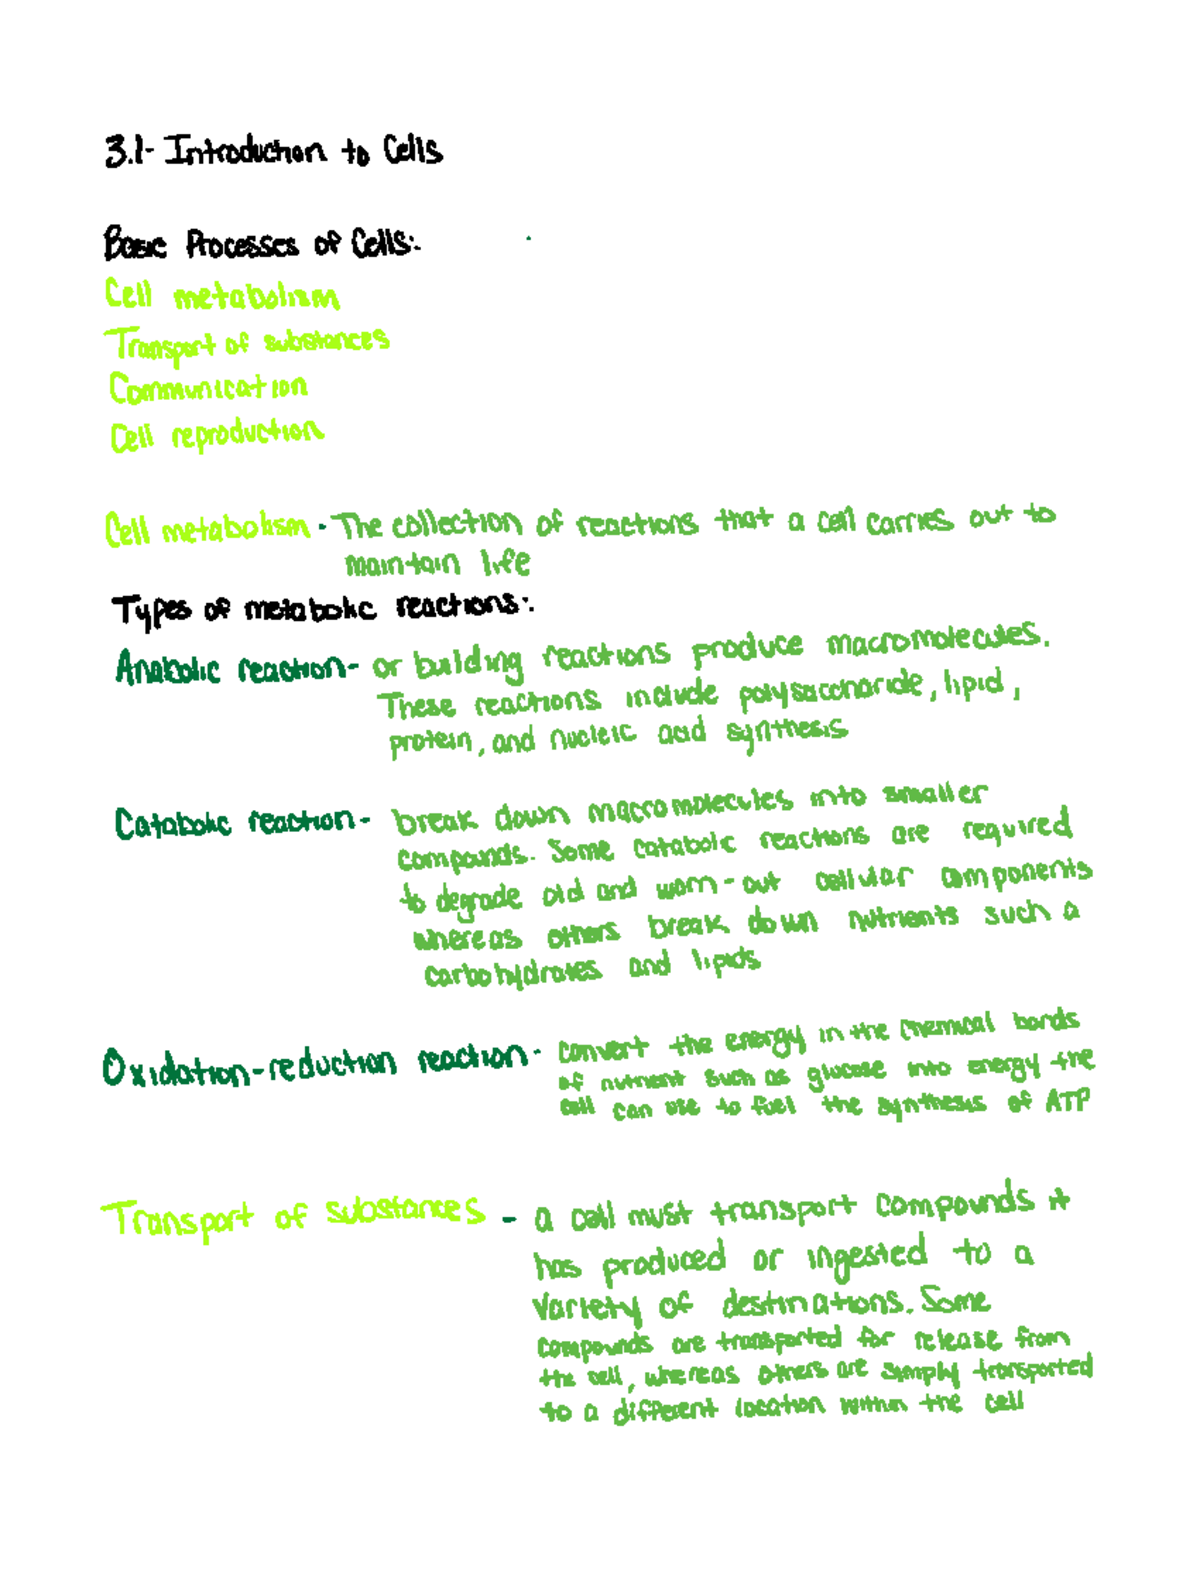 3.1- Introduction to Cells
Basic Processes of Cells:
Cell metabolism
Transport of substances
Communication
Cell reproduction
Cell metabolism - The collection of reactions that a cell carries out to
maintain life
Types of metabolic reactions:
Anabolic reaction- or building reactions produce macromolecules.
These reactions include polysaccharide, lipid,
protein, and nucleic acid synthesis
Catabolic reaction- break down macromolecules into smaller
compounds. Some catabolic reactions are required
to degrade old and worn-out cellular components
whereas others break down nutrients such a
carbohydrates and lipids
Oxidation-reduction reaction- convert the energy in the chemical bonds
of nutrient such as glucose into energy the
cell can use to fuel the synthesis of ATP
Transport of substances - a cell must transport compounds it
has produced or ingested to a
variety of destinations. Some
compounds are transported for release from
the cell, whereas others are simply transported
to a different location within the cell